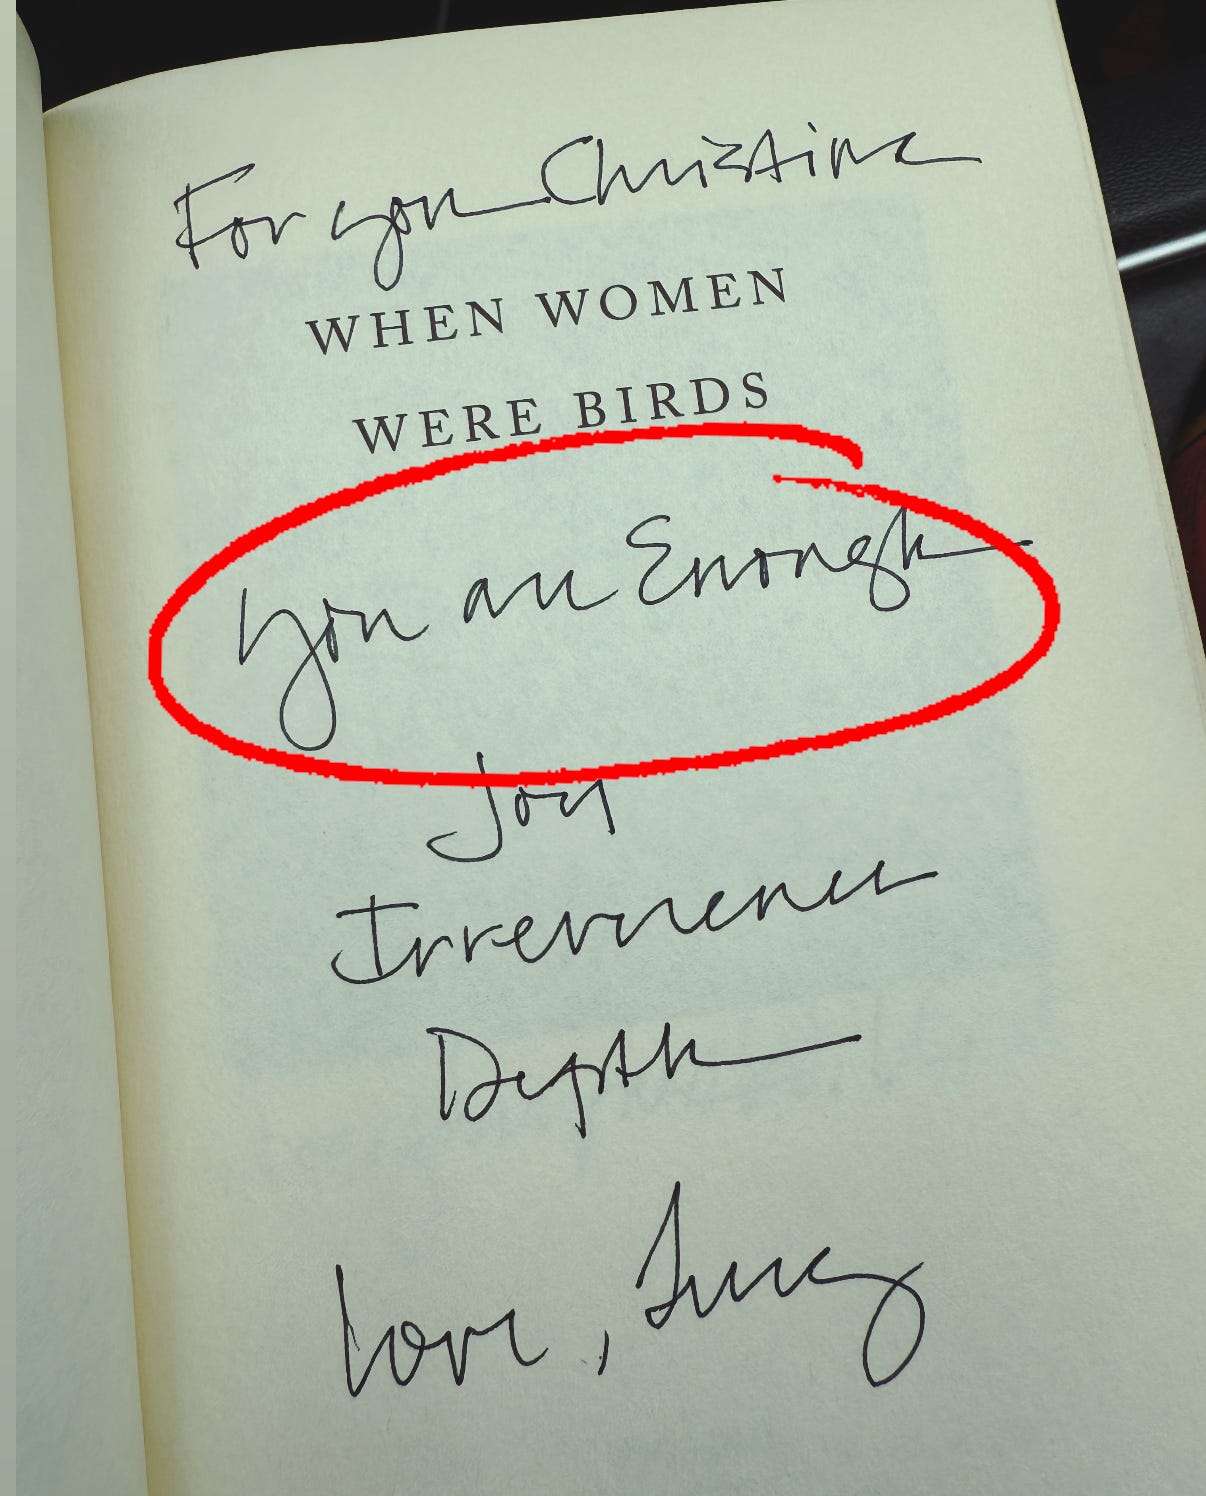 For you Christine
WHEN WOMEN
WERE BIRDS
You are Enough
Joy
Irreverence
Depth
Love, Terry